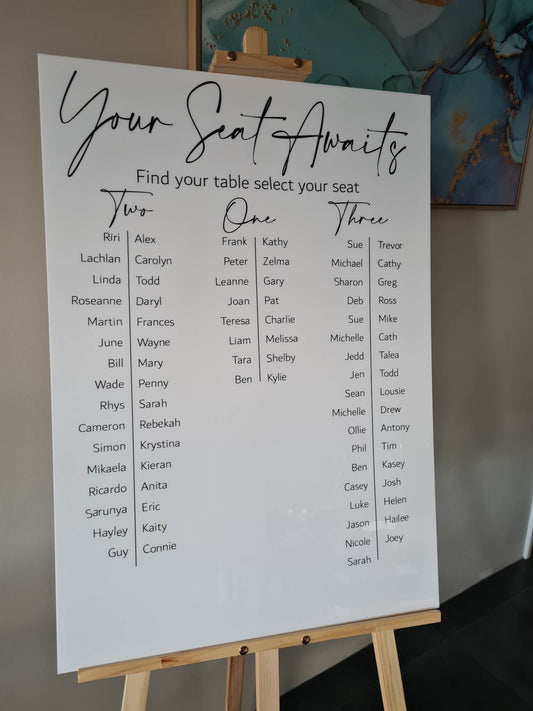 Your Seat Awaits
Find your table select your seat
Two
Riri Alex
Lachlan Carolyn
Linda Todd
Roseanne Daryl
Martin Frances
June Wayne
Bill Mary
Wade Penny
Rhys Sarah
Cameron Rebekah
Simon Krystina
Mikaela Kieran
Ricardo Anita
Sarunya Eric
Hayley Kaity
Guy Connie
One
Frank Kathy
Peter Zelma
Leanne Gary
Joan Pat
Teresa Charlie
Liam Melissa
Tara Shelby
Ben Kylie
Three
Sue Trevor
Michael Cathy
Sharon Greg
Deb Ross
Sue Mike
Michelle Cath
Jedd Talea
Jen Todd
Sean Lousie
Michelle Drew
Ollie Antony
Phil Tim
Ben Kasey
Casey Josh
Luke Helen
Jason Hailee
Nicole Joey
Sarah